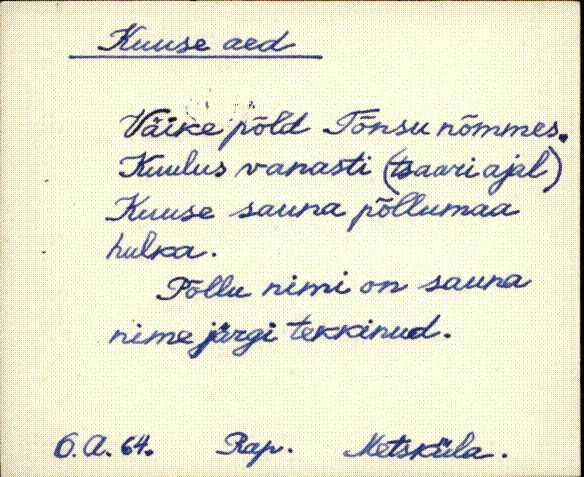 Kuuse aed
Väike põld Tõnsu nõmmes.
Kuulus vanasti (tsaari ajal)
Kuuse sauna põllumaa
hulka.
Põllu nimi on sauna
nime järgi tekkinud.
O.A. 64. Rap. Metsküla.